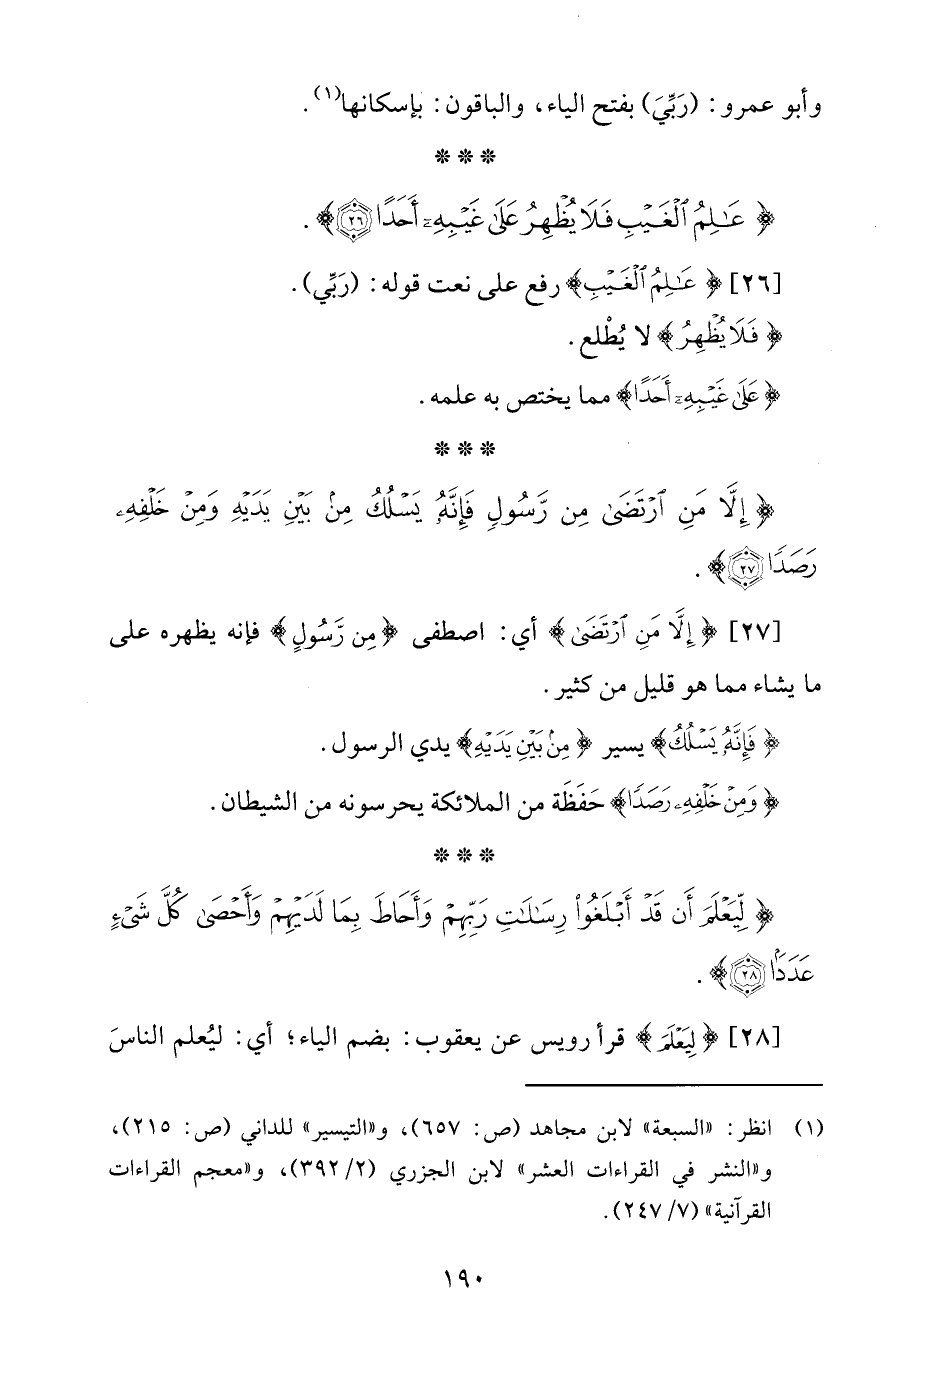 وأبو عمرو: (رَبِّيَ) بفتح الياء، والباقون: بإسكانها(١).
*** 
﴿ عَٰلِمُ ٱلْغَيْبِ فَلَا يُظْهِرُ عَلَىٰ غَيْبِهِۦٓ أَحَدًا ٢٦ ﴾.
[٢٦] ﴿ عَٰلِمُ ٱلْغَيْبِ ﴾ رفع على نعت قوله: (رَبِّي).
﴿ فَلَا يُظْهِرُ ﴾ لا يُطْلع.
﴿ عَلَىٰ غَيْبِهِۦٓ أَحَدًا ﴾ مما يختص به علمه.
***
﴿ إِلَّا مَنِ ٱرْتَضَىٰ مِن رَّسُولٍ فَإِنَّهُۥ يَسْلُكُ مِنۢ بَيْنِ يَدَيْهِ وَمِنْ خَلْفِهِۦ
رَصَدًا ٢٧ ﴾.
[٢٧] ﴿ إِلَّا مَنِ ٱرْتَضَىٰ ﴾ أي: اصطفى ﴿ مِن رَّسُولٍ ﴾ فإنه يظهره على
ما يشاء مما هو قليل من كثير.
﴿ فَإِنَّهُۥ يَسْلُكُ ﴾ يسير ﴿ مِنۢ بَيْنِ يَدَيْهِ ﴾ يدي الرسول.
﴿ وَمِنْ خَلْفِهِۦ رَصَدًا ﴾ حَفَظَة من الملائكة يحرسونه من الشيطان.
***
﴿ لِّيَعْلَمَ أَن قَدْ أَبْلَغُوا۟ رِسَٰلَٰتِ رَبِّهِمْ وَأَحَاطَ بِمَا لَدَيْهِمْ وَأَحْصَىٰ كُلَّ شَىْءٍ
عَدَدًۢا ٢٨ ﴾.
[٢٨] ﴿ لِيَعْلَمَ ﴾ قرأ رويس عن يعقوب: بضم الياء؛ أي: ليُعلم الناسَ
(١) انظر: «السبعة» لابن مجاهد (ص: ٦٥٧)، و«التيسير» للداني (ص: ٢١٥)،
و«النشر في القراءات العشر» لابن الجزري (٢/ ٣٩٢)، و«معجم القراءات
القرآنية» (٧/ ٢٤٧).
١٩٠